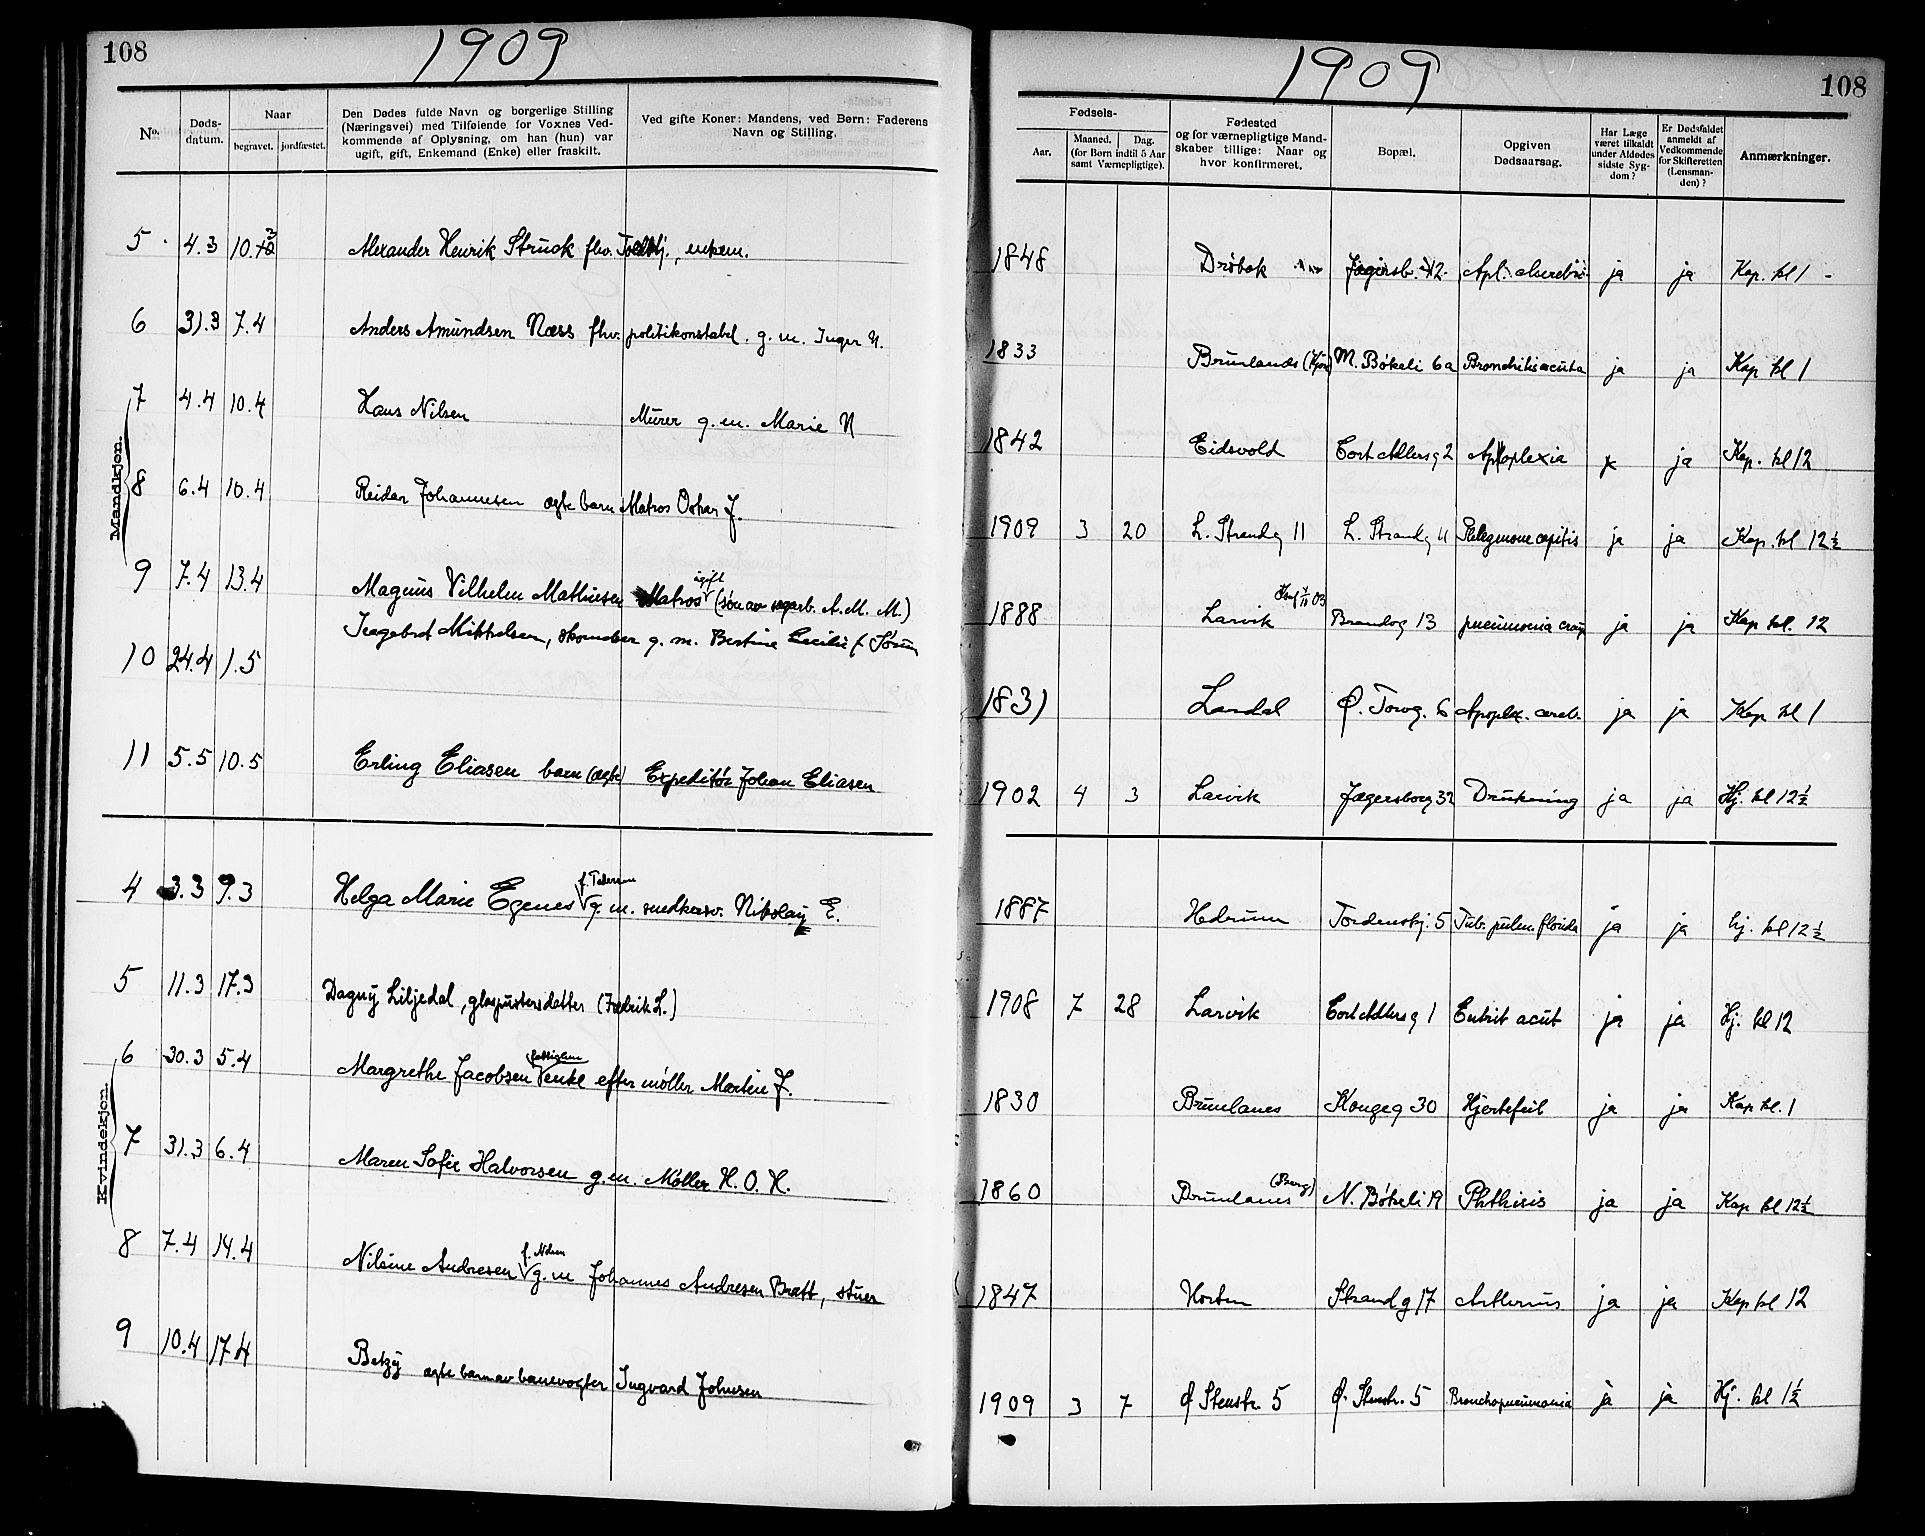 108
1909
No.
Døds-
datum.
Naar
begravet. jordfæstet.
Den Dødes fulde Navn og borgerlige Stilling
(Næringsvei) med Tilføiende for Voxnes Ved-
kommende af Oplysning, om han (hun) var
ugift, gift, Enkemand (Enke) eller fraskilt.
Ved gifte Koner: Mandens, ved Børn: Faderens
Navn og Stilling.
Mandkjøn.
5 4.3 10.3 Alexander Henrik Struck fhv. enkem.
6 31.3 7.4 Anders Amundsen Næss fhv. politikonstabel. g. m. Inger N.
7 4.4 10.4 Hans Nilsen Murer g. m. Marie N
8 6.4 10.4 Reidar Johannesen ægte barn Matros Oskar J.
9 7.4 13.4 Magnus Vilhelm Mathiesen Matros ugift (søn av sagarb. A. M. M.)
10 24.4 1.5 Ingebret Mikkelsen, skomaker g. m. Bertine Cecilie f. Sørum
11 5.5 10.5 Erling Eliasen barn (ægte) Expeditør Johan Eliasen
Kvindekjøn.
4 3.3 9.3 Helga Marie Egenes f. Pedersen g. m. snedkersv. Nikolay E.
5 11.3 17.3 Dagny Liljedal, glaspustersdatter (Fredrik L.)
6 30.3 5.4 Margrethe Jacobsen fattiglem enke efter møller Martin J.
7 31.3 6.4 Maren Sofie Halvorsen g. m. Møller H. O. H.
8 7.4 14.4 Nilsine Andresen f. Nilsen g. m Johannes Andresen Bratt, stuer
9 10.4 17.4 Betzy ægte barn av banevogter Ingvard Johnsen
1909
108
Fødsels-
Aar.
Maaned. Dag.
(for Børn indtil 5 Aar
samt Værnepligtige).
Fødested
og for værnepligtige Mand-
skaber tillige: Naar og
hvor konfirmeret.
Bopæl.
Opgiven
Dødsaarsag.
Har Læge
været tilkaldt
under Afdødes
sidste Syg-
dom?
Er Dødsfaldet
anmeldt af
Vedkommende
for Skifteretten
(Lensman-
den)?
Anmærkninger.
1848 Drøbak Jægersb. 12 Apl. cerebri ja ja Kap. kl 1
1833 Brunlanæs M. Bøkeli 6a Bronchitis acuta ja ja Kap kl 1
1842 Eidsvold Cort Adlersg 2 Apoplexia x ja Kap. kl 12
1909 3 20 L. Strandg 11 L. Strandg 11 Phlegmone capitis ja ja Kap. kl 12½
1888 Larvik Konf 1/11 03 Brandog 13 pneumonia croup ja ja Kap kl. 12
1831 Lardal Ø. Torvg. 6 Apoplex. cereb. ja ja Kap kl 1
1902 4 3 Larvik Jægersborg 32 Drukning ja ja Hj. kl 12½
1887 Hedrum Tordenskj. 5 Tub. pulm. florida ja ja hj. kl 12½
1908 7 28 Larvik Cort Adlers g 1 Enterit acut ja ja Hj. kl 12
1830 Brunlanes Kongeg 30 Hjertefeil ja ja Kap kl. 1
1860 Brunlanes (Berg) N. Bøkeli 19 Phthisis ja ja Kap kl 12½
1847 Horten Strandg 17 ja ja Kap kl 12
1909 3 7 Ø Stenstr. 5 Ø. Stenstr. 5 Bronchopneumonia ja ja Hj. kl 1½